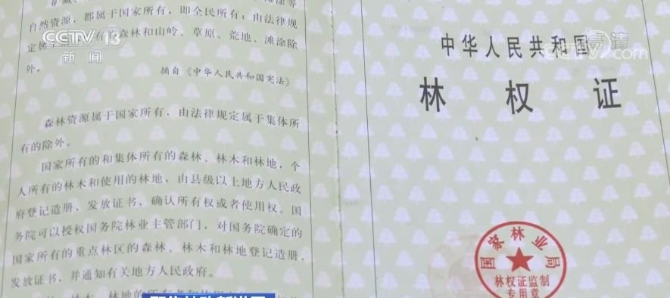 CCTV 13
新闻
自然资源，都属于国家所有，即全民所有；由法律规
森林和山岭、草原、荒地、滩涂除
外。
摘自《中华人民共和国宪法》
森林资源属于国家所有，由法律规定属于集体所
有的除外。
国家所有的和集体所有的森林、林木和林地，个
人所有的林木和使用的林地，由县级以上地方人民政
府登记造册，发放证书，确认所有权或者使用权。国
务院可以授权国务院林业主管部门，对国务院确定的
国家所有的重点林区的森林、林木和林地登记造册，
发放证书，并通知有关地方人民政府。
中华人民共和国
林权证
国家林业局
林权证监制
专用章